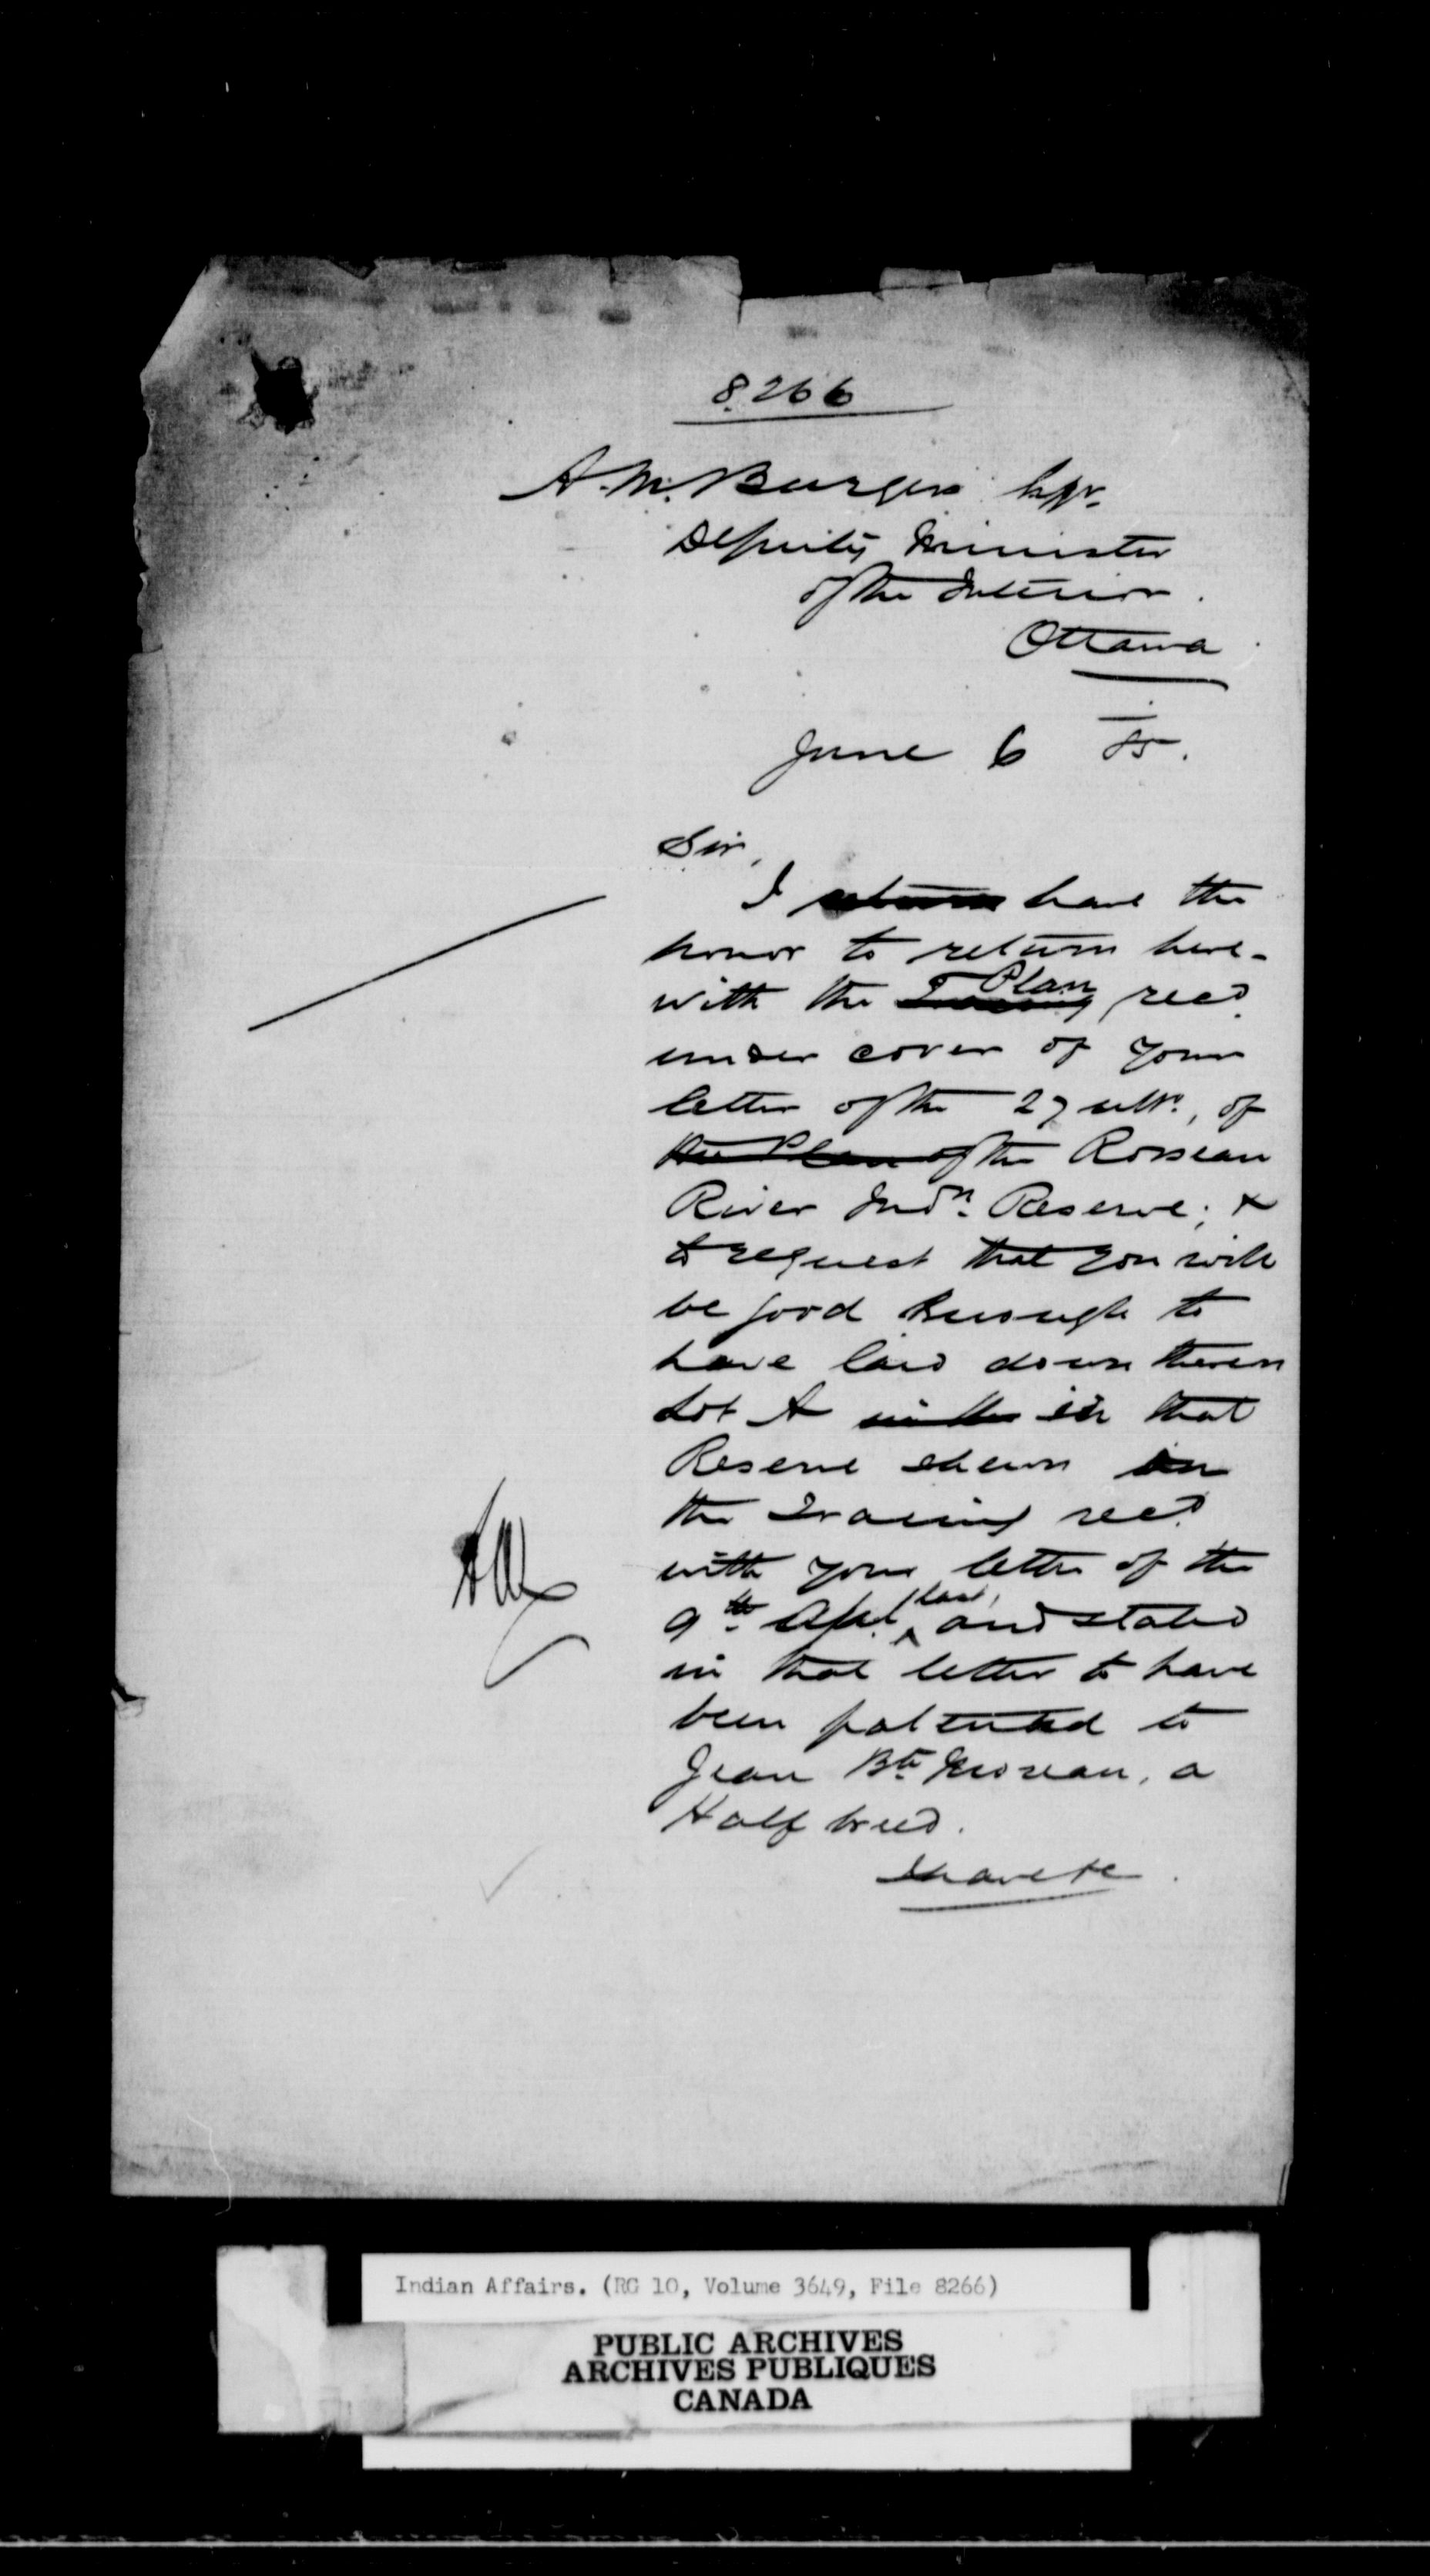 8266
A. M. Burgess Esqr.
Deputy Minister
of the Interior.
Ottawa
June 6 85.
Sir,
I return have the
honor to return here-
with the Tracing Plan recd
under cover of your
letter of the 27 ulto., of
the Plan of the Roseau
River Indn. Reserve; &
to request that you will
be good enough to
have laid down thereon
Lot A in the in that
Reserve shewn on
the Tracing recd
with your letter of the
9th Apl. last, and stated
in that letter to have
been patented to
Jean Bte. Moreau, a
Half breed.
I have &c
Indian Affairs. (RG 10, Volume 3649, File 8266)
PUBLIC ARCHIVES
ARCHIVES PUBLIQUES
CANADA